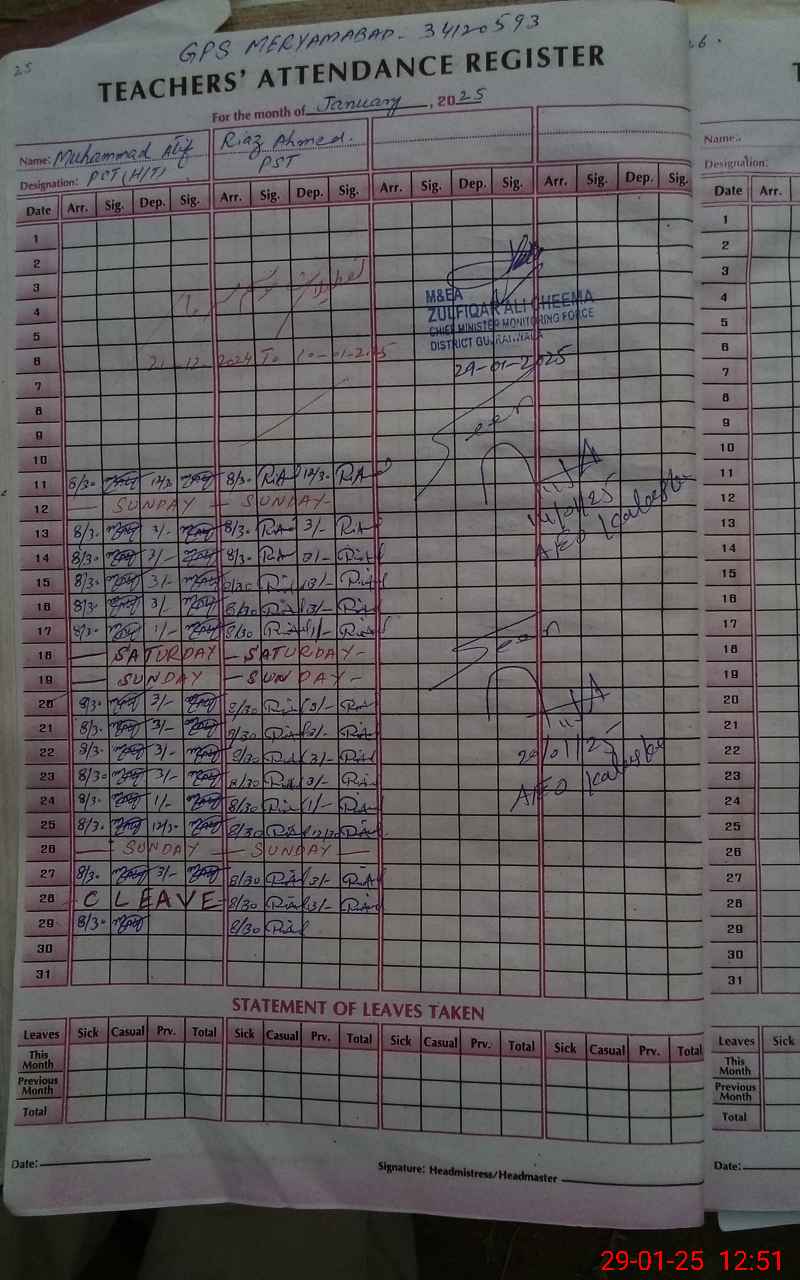 25
GPS MERYAMABAD- 34120593
TEACHERS' ATTENDANCE REGISTER
For the month of January, 2025
Name: Muhammad Atif Riaz Ahmed.
Designation: PST(H/T) PST
Date Arr. Sig. Dep. Sig. Arr. Sig. Dep. Sig. Arr. Sig. Dep. Sig. Arr. Sig. Dep. Sig.
1
2
3
4
5
6 21-12-2024 To 10-01-2025
7
8
9
10
M&EA
ZULFIQAR ALI CHEEMA
CHIEF MINISTER MONITORING FORCE
DISTRICT GUJRANWALA
29-01-2025
Seen
11 8/30 12/30 8/30 R.A 12/30 R.A
12 — SUNDAY — SUNDAY-
13 8/30 3/- 8/30 R.A 3/- R.A
14 8/30 3/- 8/30 R.A 3/- R.A
15 8/30 3/- 8/30 R.A 3/- R.A
16 8/30 3/- 8/30 R.A 3/- R.A
17 8/30 1/- 8/30 R.A 1/- R.A
14/01/25
AEO
18 — SATURDAY — SATURDAY-
19 — SUNDAY — SUNDAY-
Seen
20 8/30 3/- 8/30 R.A 3/- R.A
21 8/30 3/- 8/30 R.A 3/- R.A
22 8/30 3/- 8/30 R.A 3/- R.A
23 8/30 3/- 8/30 R.A 3/- R.A
24 8/30 1/- 8/30 R.A 1/- R.A
25 8/30 12/30 8/30 R.A 12/30 R.A
AEO
26 — SUNDAY — SUNDAY —
27 8/30 3/- 8/30 R.A 3/- R.A
28 C LEAVE 8/30 R.A 3/- R.A
29 8/30 8/30 R.A
30
31
STATEMENT OF LEAVES TAKEN
Leaves Sick Casual Prv. Total Sick Casual Prv. Total Sick Casual Prv. Total Sick Casual Prv. Total
This Month
Previous Month
Total
Date:
Signature: Headmistress/Headmaster
26.
T
Name:
Designation:
Date Arr.
1
2
3
4
5
6
7
8
9
10
11
12
13
14
15
16
17
18
19
20
21
22
23
24
25
26
27
28
29
30
31
Leaves Sick
This Month
Previous Month
Total
Date:
29-01-25 12:51